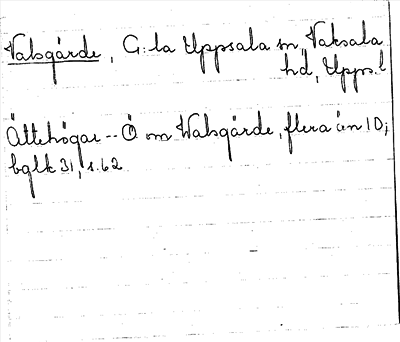 Valsgärde, G:la Uppsala sn, Vaksala
hd, Upps.l
Ättehögar -- Ö om Walsgärde, flera än 10;
bglk 31, s. 62